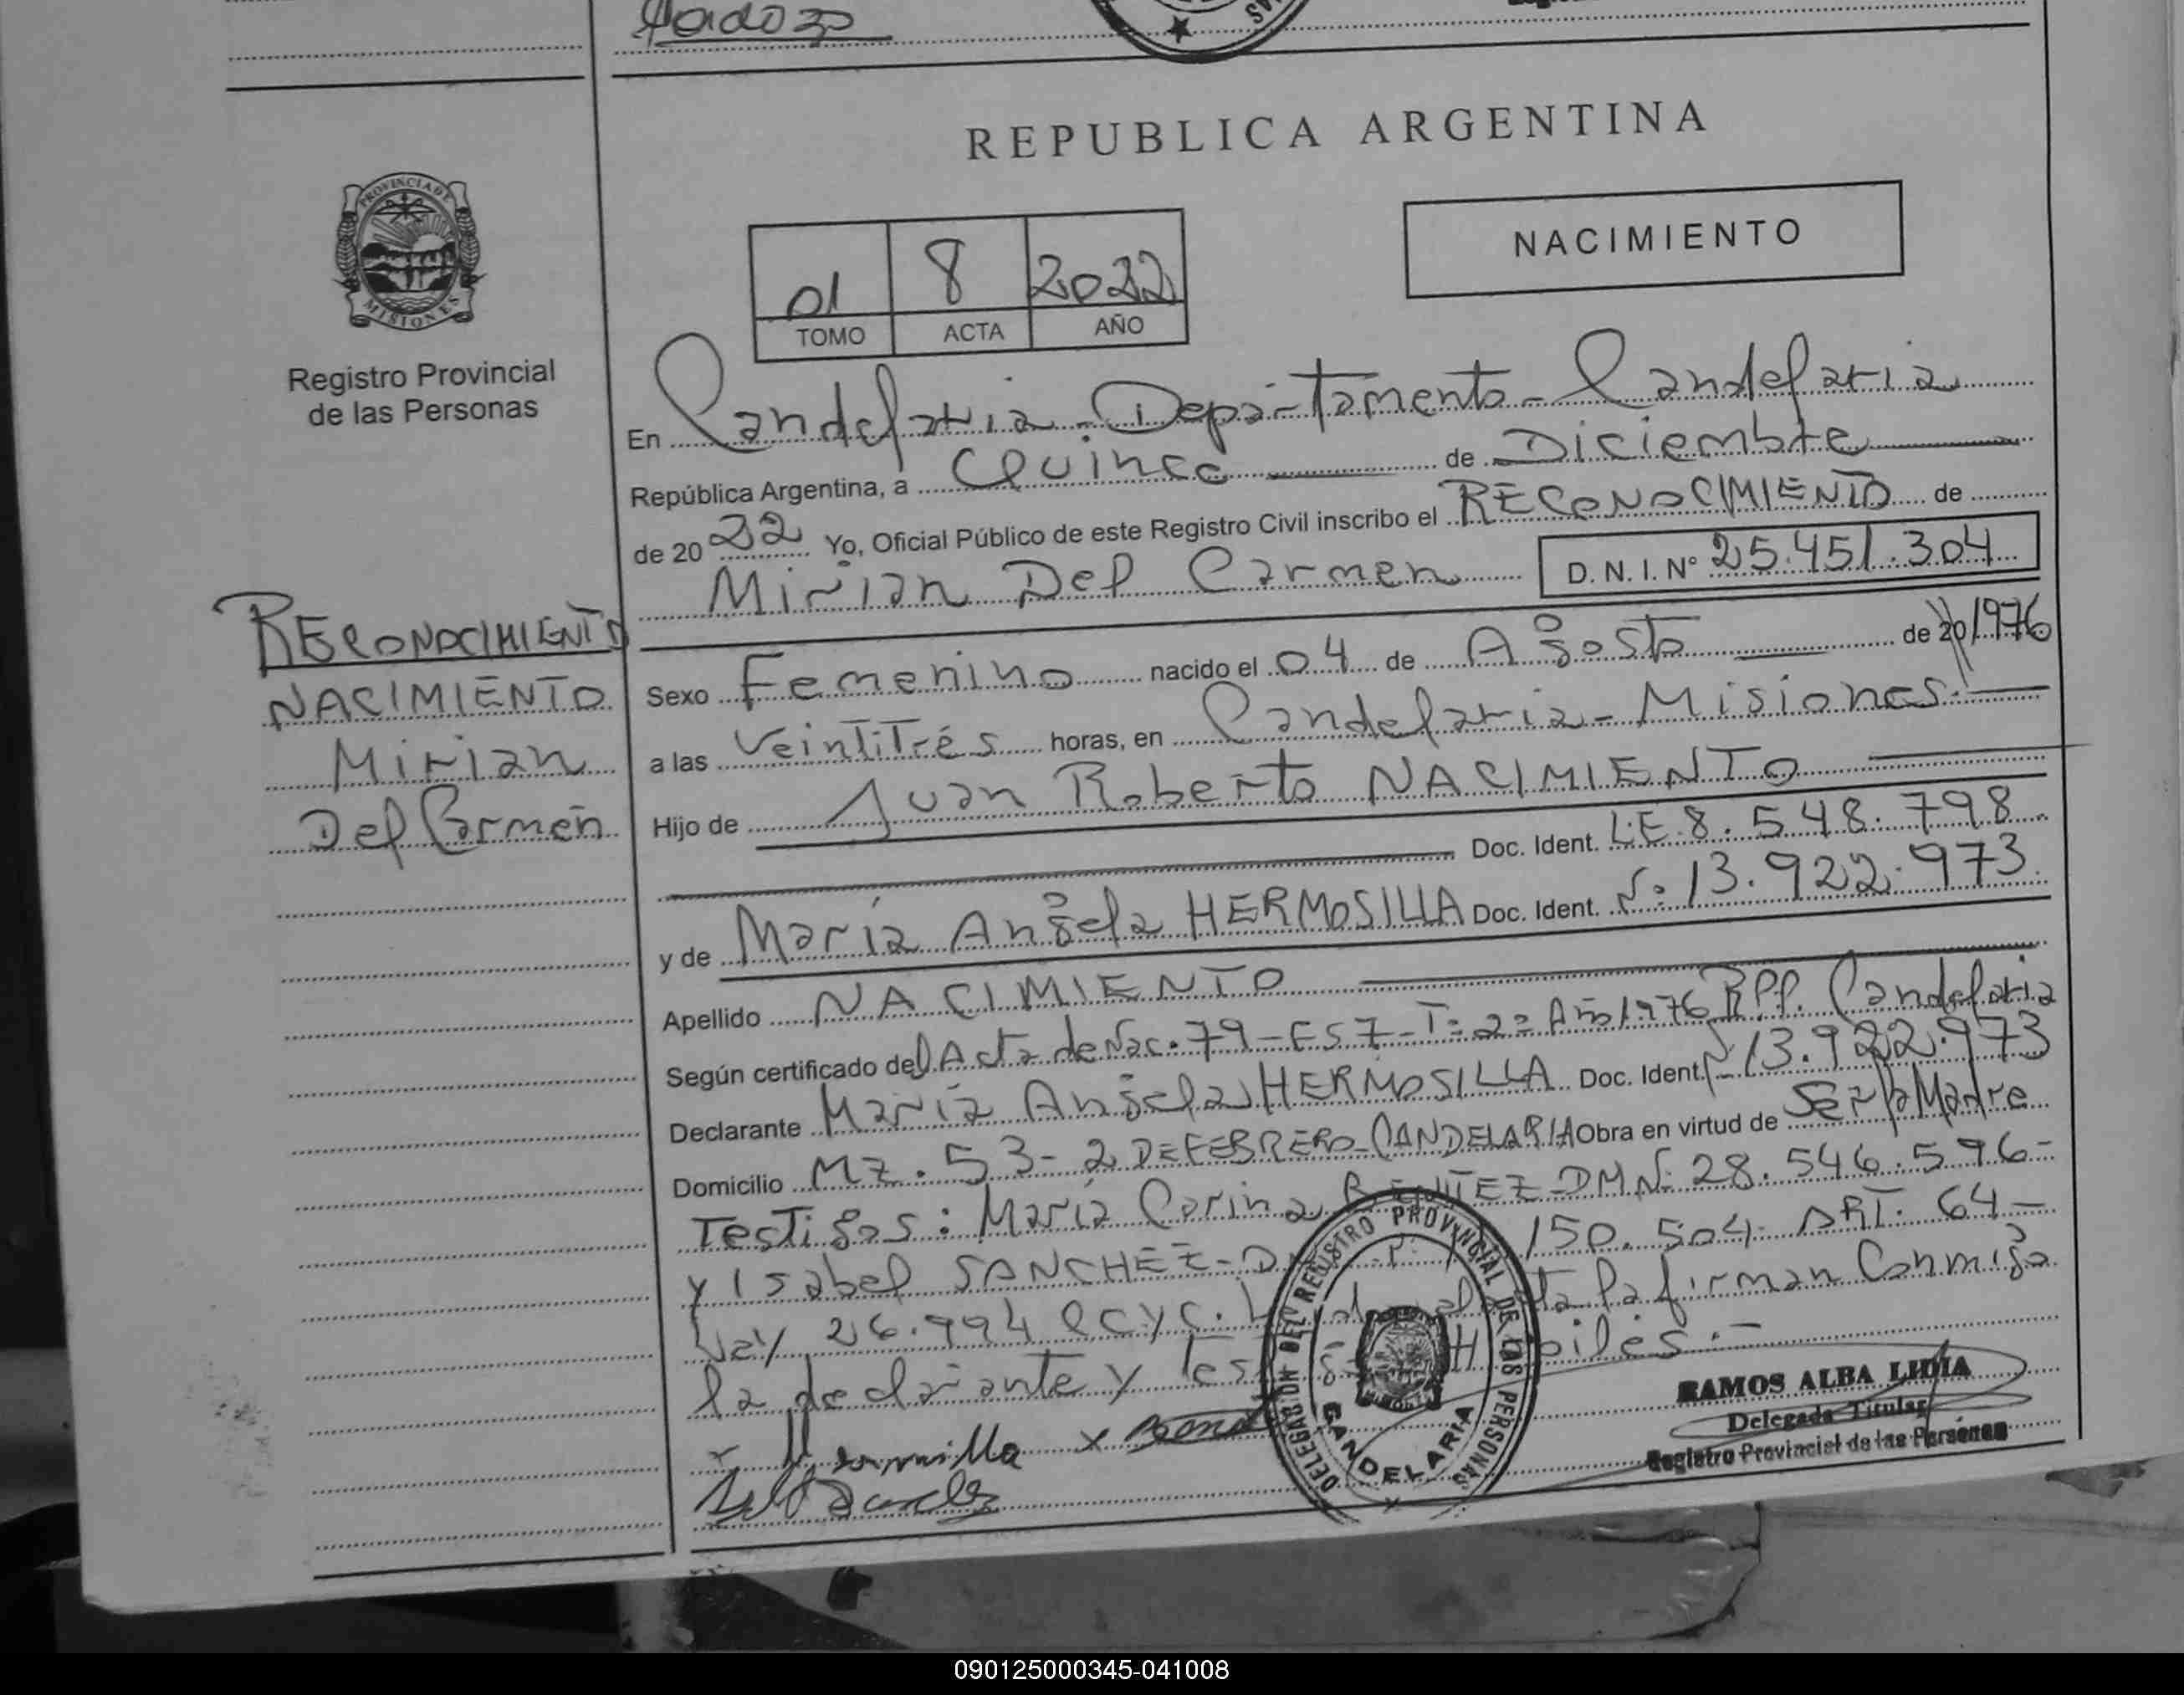 REPUBLICA ARGENTINA
PROVINCIA DE
MISIONES
NACIMIENTO
01 8 2022
TOMO ACTA AÑO
Registro Provincial
de las Personas
En Candelaria - Departamento - Candelaria
República Argentina, a Quince de Diciembre
de 20 22 Yo, Oficial Público de este Registro Civil inscribo el RECONOCIMIENTO de
Mirian Del Carmen D.N.I. Nº 25.451.304
RECONOCIMIENTO
NACIMIENTO
Mirian
Del Carmen
Sexo Femenino nacido el 04 de Agosto de 20 1976
a las Veintitrés horas, en Candelaria - Misiones.
Hijo de Juan Roberto NACIMIENTO
Doc. Ident. L.E 8.548.798
y de María Angela HERMOSILLA Doc. Ident. Nº 13.922.973
Apellido NACIMIENTO
Según certificado del Acta de Nac. 79 - Fs 7 - Tº 2º Año 1976 RPP. Candelaria
Declarante María Angela HERMOSILLA Doc. Ident. Nº 13.922.973
Domicilio MZ. 53 - 2 DE FEBRERO - CANDELARIA Obra en virtud de Ser la Madre
Testigos: María Corina BENITEZ DNI Nº 28.546.596 -
y Isabel SANCHEZ - 150.504 - ART. 64 -
Ley 26.994 CCyC. la firman Conmigo
la declarante y Hábiles.-
Hermosilla
DELEGACION DEL REGISTRO PROVINCIAL DE LAS PERSONAS
CANDELARIA
RAMOS ALBA LIDIA
Delegada Titular
Registro Provincial de las Personas
090125000345-041008